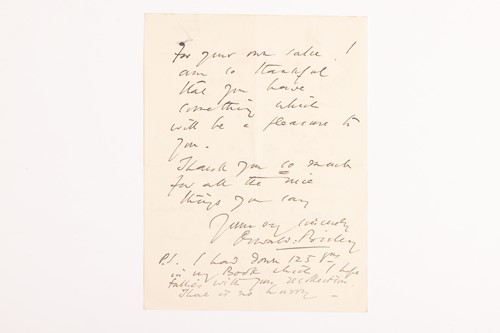 For your own sake. I
am so thankful
that you have
something which
will be a pleasure to
you.
Thank you so much
for all the nice
things you say
Yours very sincerely
Oswald Birley
P.S. I have down 125 gns
in my Book which I hope
tallies with your recollection.
There is no hurry —